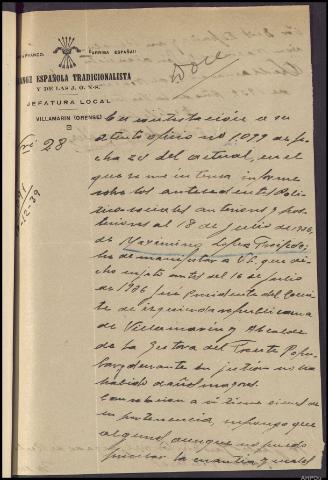 ¡ARRIBA ESPAÑA!
FALANGE ESPAÑOLA TRADICIONALISTA
Y DE LAS J. O. N-S.
JEFATURA LOCAL
VILLAMARIN (ORENSE)
Doce
28
12-39
En contestacion a su
atento oficio nº 1.099 de fe
cha 24 del actual, en el
que se me interesa informe
sobre los antecedentes Politi
co-sociales anteriores y pos
teriores al 18 de julio de 1936,
de Maximino López
he de manifestar a V.S. que di
cho sujeto antes del 16 de julio
de 1936 fué Presidente del Comi
te de izquierda republicana
de Villamarin y Alcalde
de la Gestora del Frente Popu
lar, y durante su jestión no ha
habido daños mayores.
Con relacion a si tiene bienes de
su pertenencia, supongo que
alguno, aunque no puedo
precisar la cuantia